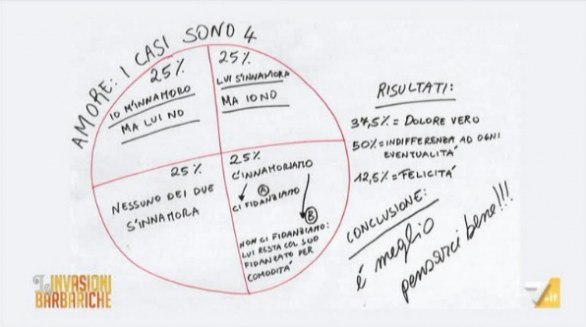 AMORE: I CASI SONO 4
25%
IO M'INNAMORO
MA LUI NO
25%
LUI S'INNAMORA
MA IO NO
25%
NESSUNO DEI DUE
S'INNAMORA
25%
C'INNAMORIAMO
A
CI FIDANZIAMO
B
NON CI FIDANZIAMO:
LUI RESTA COL SUO
FIDANZATO PER
COMODITA'
RISULTATI:
37,5% = DOLORE VERO
50% = INDIFFERENZA AD OGNI
EVENTUALITA'
12,5% = FELICITA'
CONCLUSIONE:
é meglio
pensarci bene!!!
Le INVASIONI
BARBARICHE
7.it